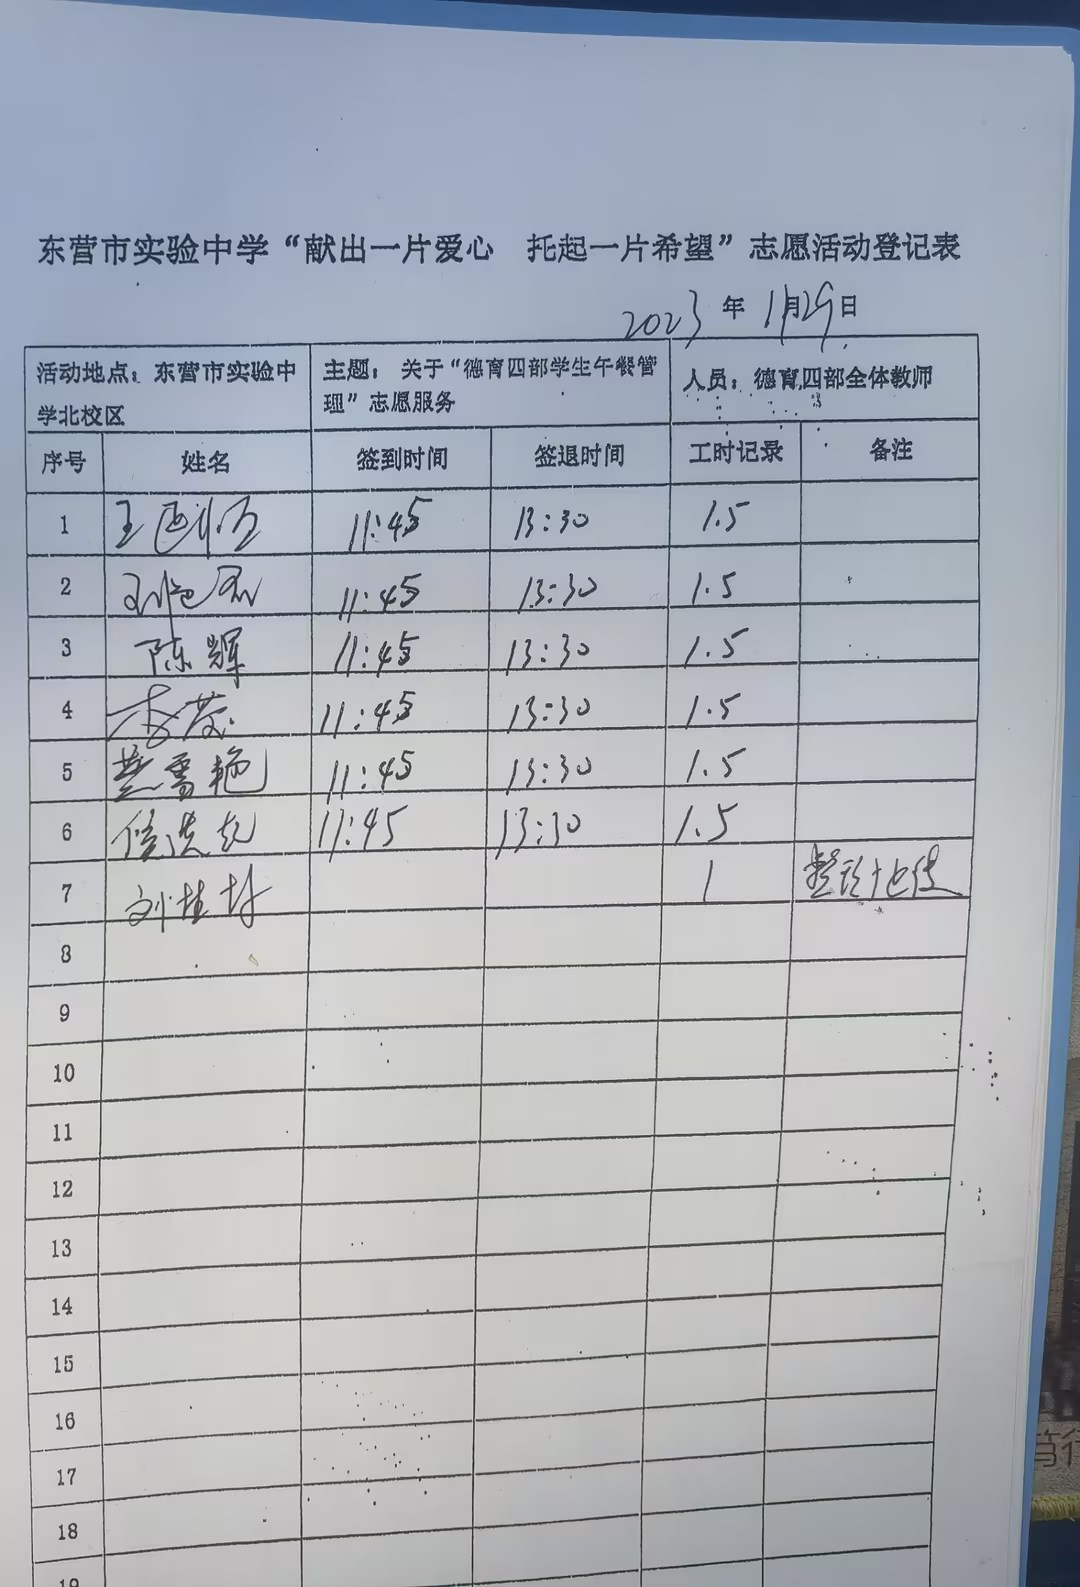 东营市实验中学“献出一片爱心 托起一片希望”志愿活动登记表
2023年11月29日
活动地点：东营市实验中学北校区 主题：关于“德育四部学生午餐管理”志愿服务 人员：德育四部全体教师
序号 姓名 签到时间 签退时间 工时记录 备注
1 王 11:45 13:30 1.5
2 11:45 13:30 1.5
3 陈辉 11:45 13:30 1.5
4 李 11:45 13:30 1.5
5 燕雪艳 11:45 13:30 1.5
6 11:45 13:30 1.5
7 刘桂 1
8
9
10
11
12
13
14
15
16
17
18
19